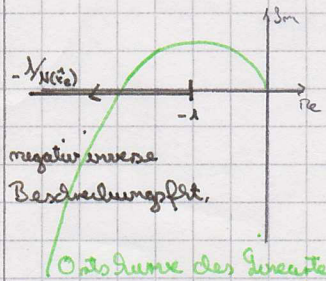 Im
-1/N(x̂e)
-1
Re
negativ inverse
Beschreibungsfkt.
Ortskurve des Linearte